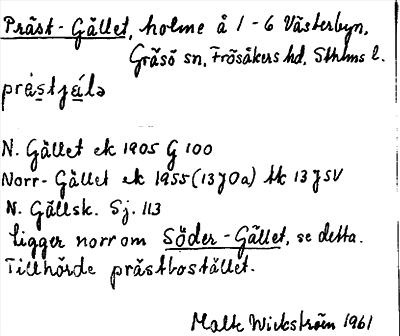 Präst-Gället, holme å 1-6 Västerbyn,
Gräsö sn, Frösåkers hd, Sthlms l.
prȧstjȧ́lə
N. Gället ek 1905 G 100
Norr-Gället ek 1955 (13 J 0a) tk 13 J SV
N. Gällsk. Sj. 113
Ligger norr om Söder-Gället, se detta.
Tillhörde prästbostället.
Malte Wickström 1961